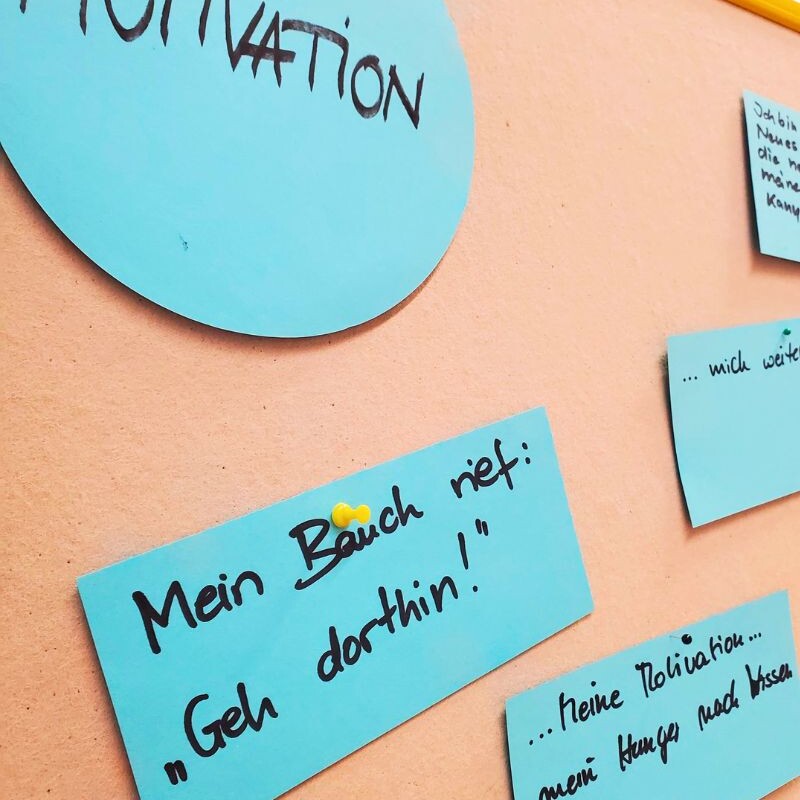 MOTIVATION
Ich bin
Neues
die ne
meine
... mich weite
Mein Bauch rief:
„Geh dorthin!"
...Meine Motivation...
mein Hunger nach Wissen